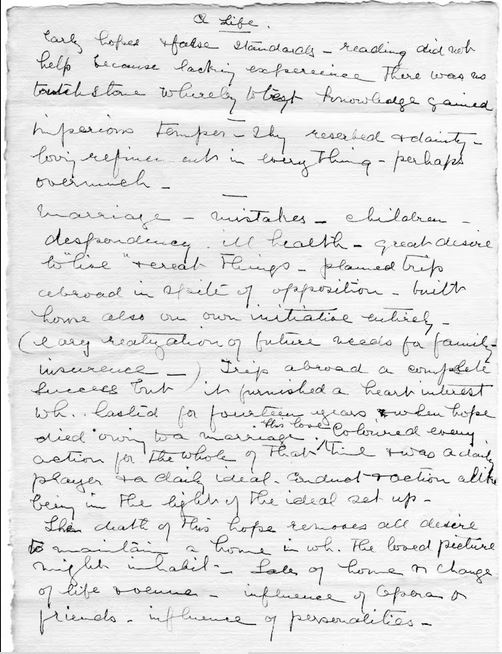 A Life.
Early hopes & false standards - reading did not
help because lacking experience there was no
touchstone whereby to test knowledge gained
imperious temper - shy reserved & dainty -
loving refinements in everything - perhaps
overmuch -
Marriage - mistakes - children -
despondency. ill health - great desire
to "live" & create things - planned trip
abroad in spite of opposition - built
home also on own initiative entirely -
(early realization of future needs for family -
insurence -) Trip abroad a complete
success but it furnished a heart interest
wh. lasted for fourteen years & when hope
died owing to a marriage. This love coloured every
action for the whole of that time & was a daily
prayer & a daily ideal. Conduct & action alike
being in the light of the ideal set up -
Then death of this hope removes all desire
to maintain a home in wh. the loved picture
might inhabit - Sale of home & change
of life & venue - influence of opera &
friends - influence of personalities -